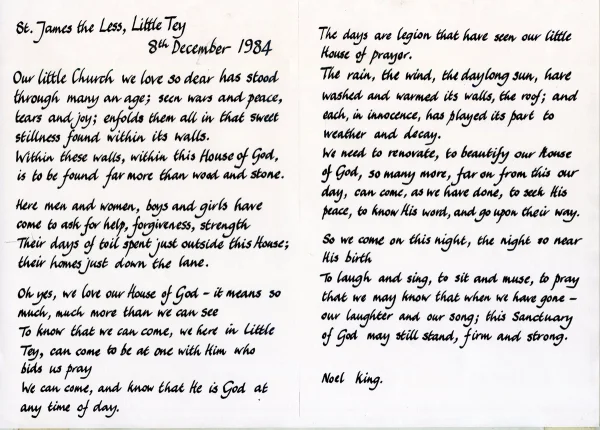 St. James the Less, Little Tey
8th December 1984
Our little Church we love so dear has stood
through many an age; seen wars and peace,
tears and joy; enfolds them all in that sweet
stillness found within its walls.
Within these walls, within this House of God,
is to be found far more than wood and stone.
Here men and women, boys and girls have
come to ask for help, forgiveness, strength
Their days of toil spent just outside this House;
their homes just down the lane.
Oh yes, we love our House of God - it means so
much, much more than we can see
To know that we can come, we here in Little
Tey, can come to be at one with Him who
bids us pray
We can come, and know that He is God at
any time of day.
The days are legion that have seen our little
House of prayer.
The rain, the wind, the daylong sun, have
washed and warmed its walls, the roof; and
each, in innocence, has played its part to
weather and decay.
We need to renovate, to beautify our House
of God, so many more, far on from this our
day, can come, as we have done, to seek His
peace, to know His word, and go upon their way.
So we come on this night, the night so near
His birth
To laugh and sing, to sit and muse, to pray
that we may know that when we have gone -
our laughter and our song; this Sanctuary
of God may still stand, firm and strong.
Noel King.